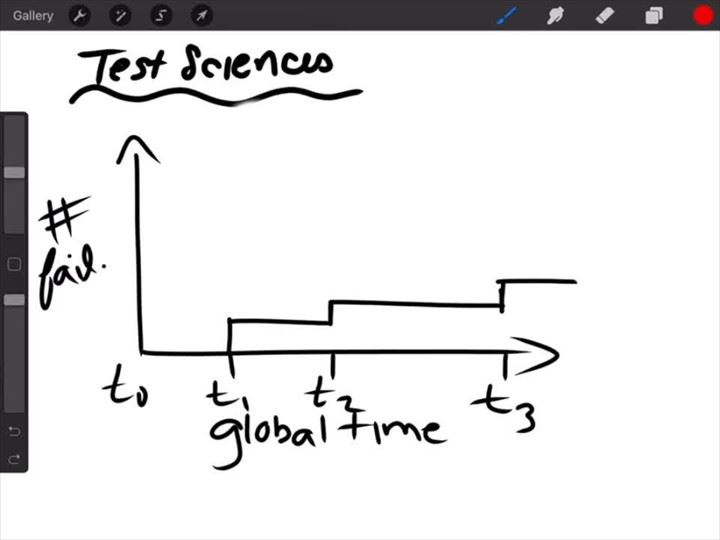 Gallery
Test Sciences
#
fail.
t0 t1 t2 t3
global time